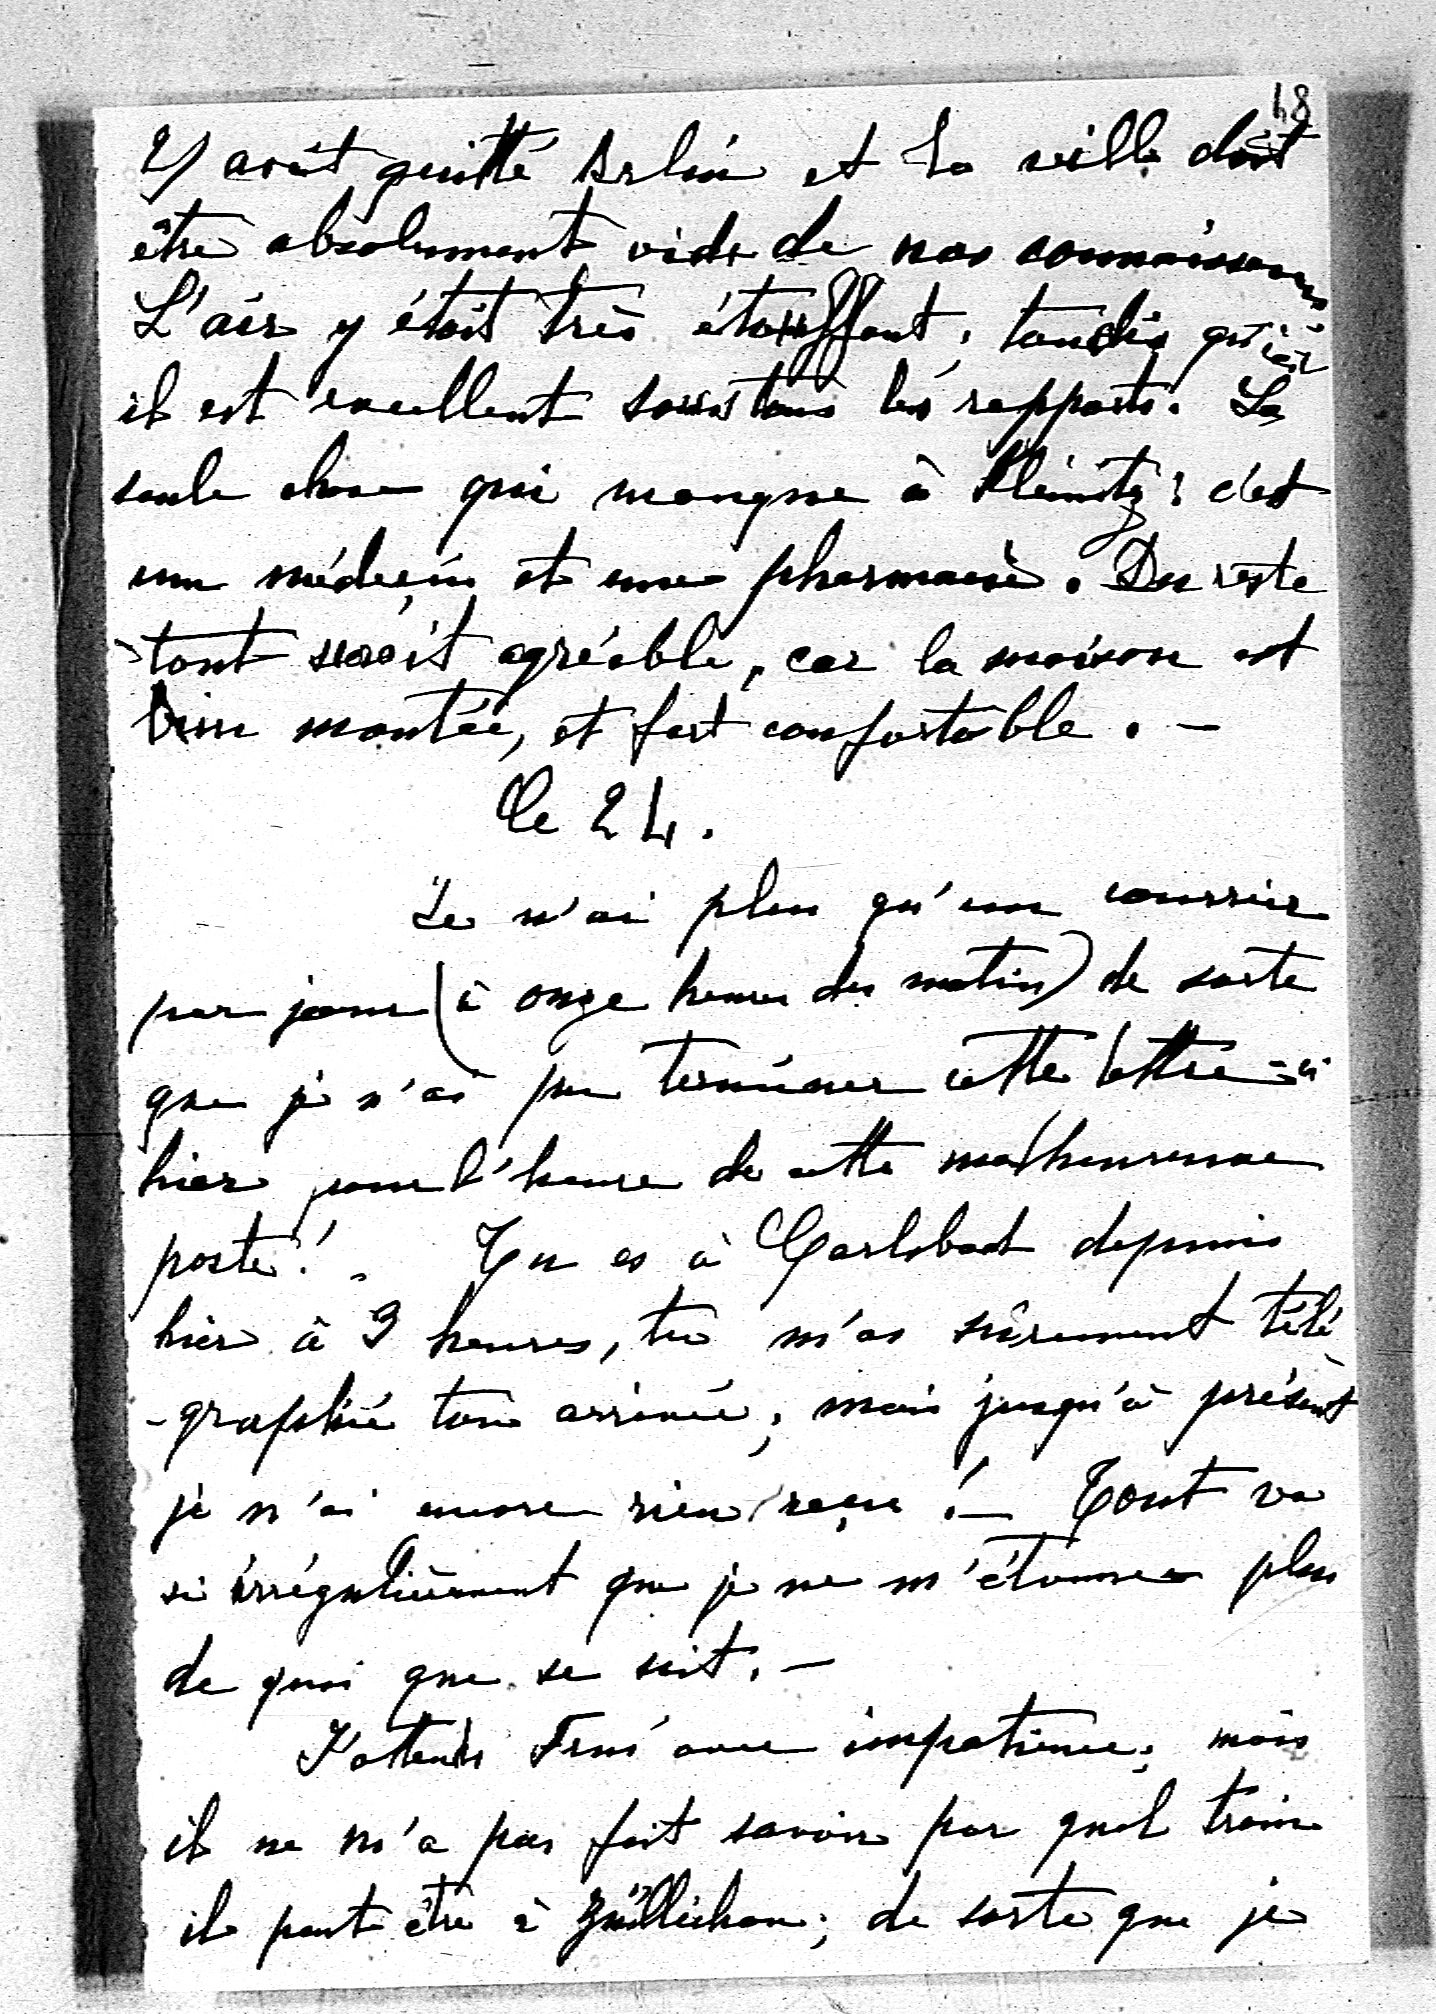 48
Y avait quitté Berlin et la ville doit
être absolument vide de nos connaissances
L'air y était très étouffant, tandis qu'ici
il est excellent sous tous les rapports. La
seule chose qui manque à Kleinitz: c'est
un médecin et une pharmacie. Du reste
tout serait agréable, car la maison est
bien montée, et fort confortable. –
Le 24.
Je n'ai plus qu'un courrier
par jour (à onze heures du matin) de sorte
que je n'ai pu terminer cette lettre-ci
hier pour l'heure de cette malheureuse
poste! – Tu es à Carlsbad depuis
hier à 3 heures, tu m'as sûrement télé
-graphié ton arrivée, mais jusqu'à présent
je n'ai encore rien reçu! – Tout va
si irrégulièrement que je ne m'étonne plus
de quoi que se soit. –
J'attends avec impatience, mais
il ne m'a pas fait savoir par quel train
il peut être à Züllichau; de sorte que je